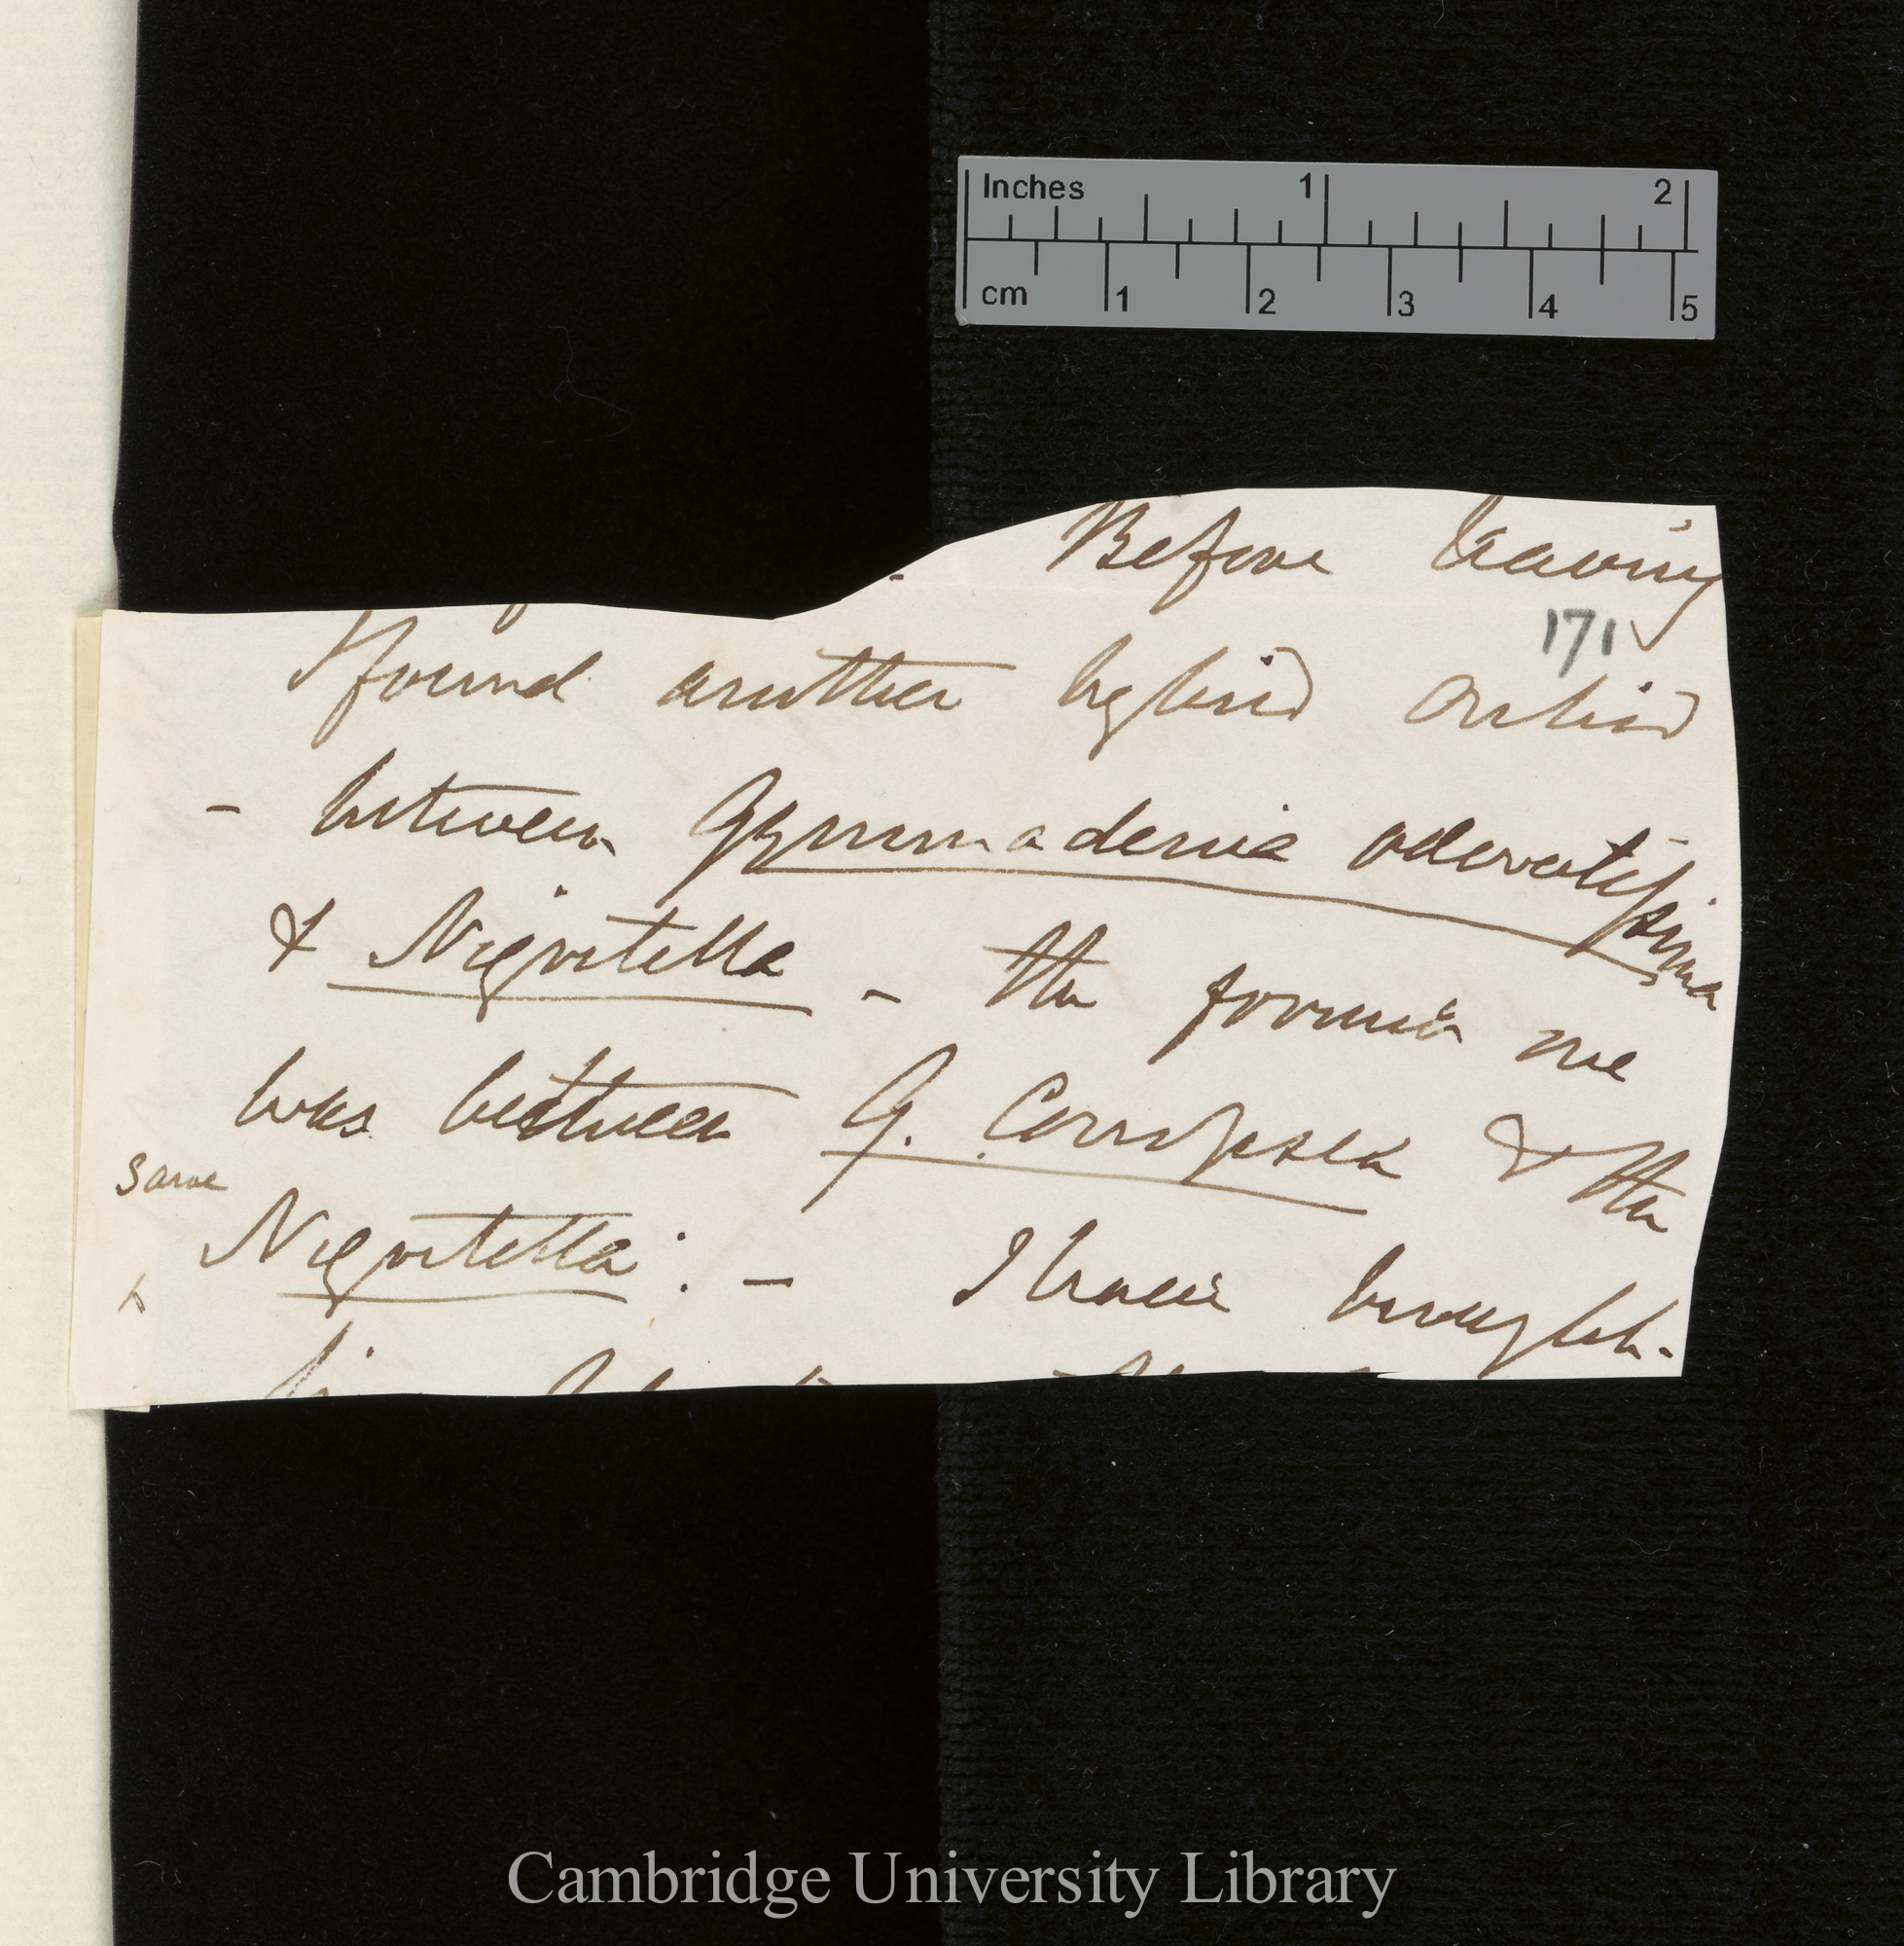 Inches 1 2
cm 1 2 3 4 5
Before leaving
171
I found another hybrid orchid
- between Gymnadenia odoratissima
& Nigritella - the former one
was between G. Conopsea & the
same
Nigritella. - I have brought
x
Cambridge University Library